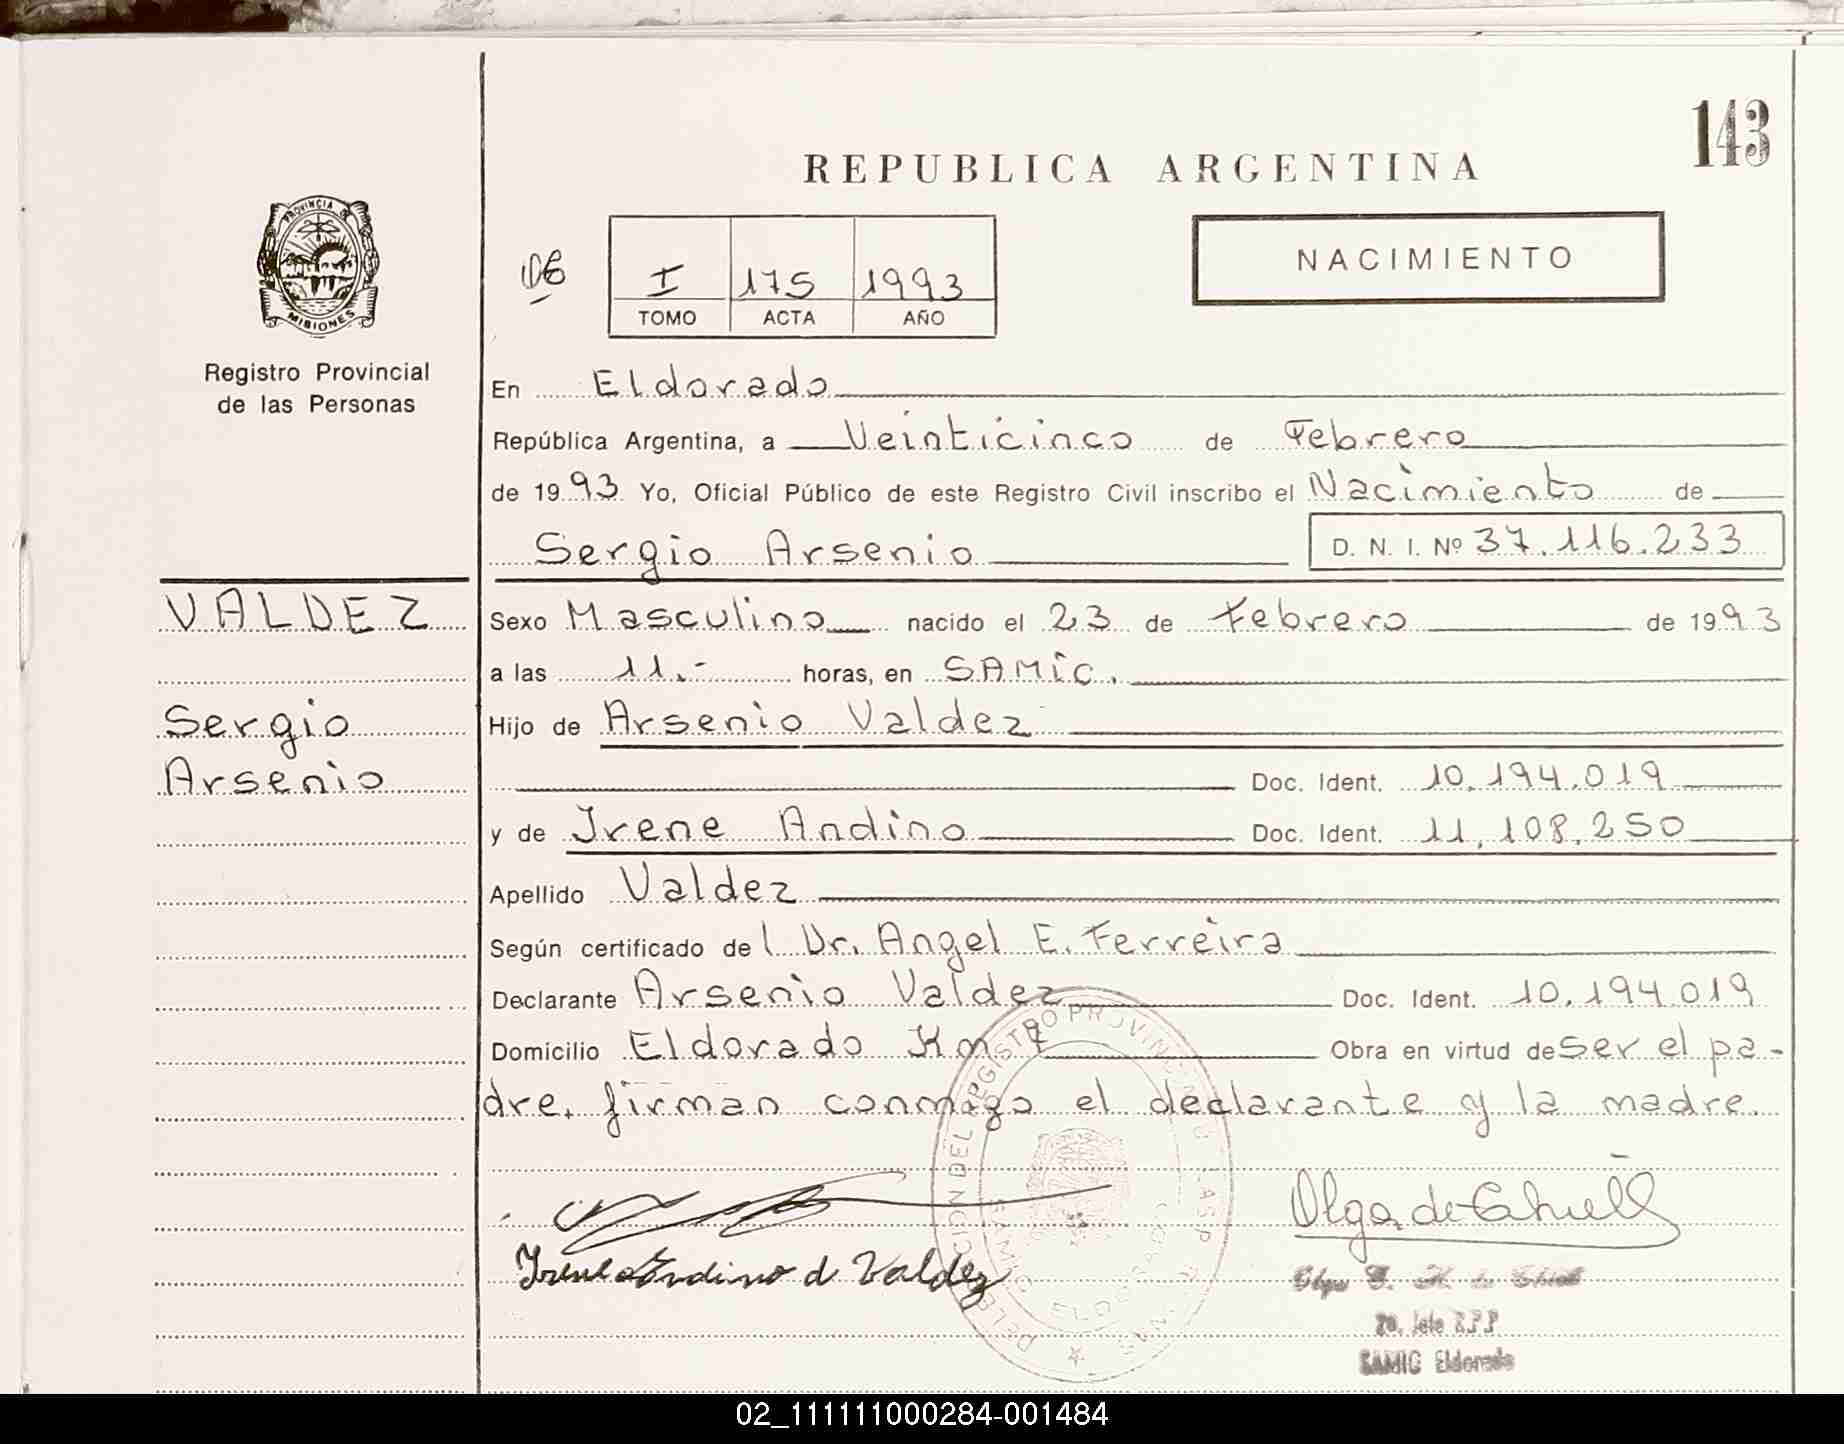 143
REPUBLICA ARGENTINA
PROVINCIA DE
MISIONES
Registro Provincial
de las Personas
I 175 1993
TOMO ACTA AÑO
NACIMIENTO
En Eldorado
República Argentina, a Veinticinco de Febrero
de 1993 Yo, Oficial Público de este Registro Civil inscribo el Nacimiento de
Sergio Arsenio D. N. I. Nº 37.116.233
VALDEZ
Sergio
Arsenio
Sexo Masculino nacido el 23 de Febrero de 1993
a las 11.- horas, en SAMIC.
Hijo de Arsenio Valdez
Doc. Ident. 10.194.019
y de Irene Andino Doc. Ident. 11.108.250
Apellido Valdez
Según certificado del Dr. Angel E. Ferreira
Declarante Arsenio Valdez Doc. Ident. 10.194.019
Domicilio Eldorado Km Obra en virtud de ser el pa-
dre. firman conmigo el declarante y la madre.
Irene Andino d Valdez
Olga de
SAMIC Eldorado
02_111111000284-001484